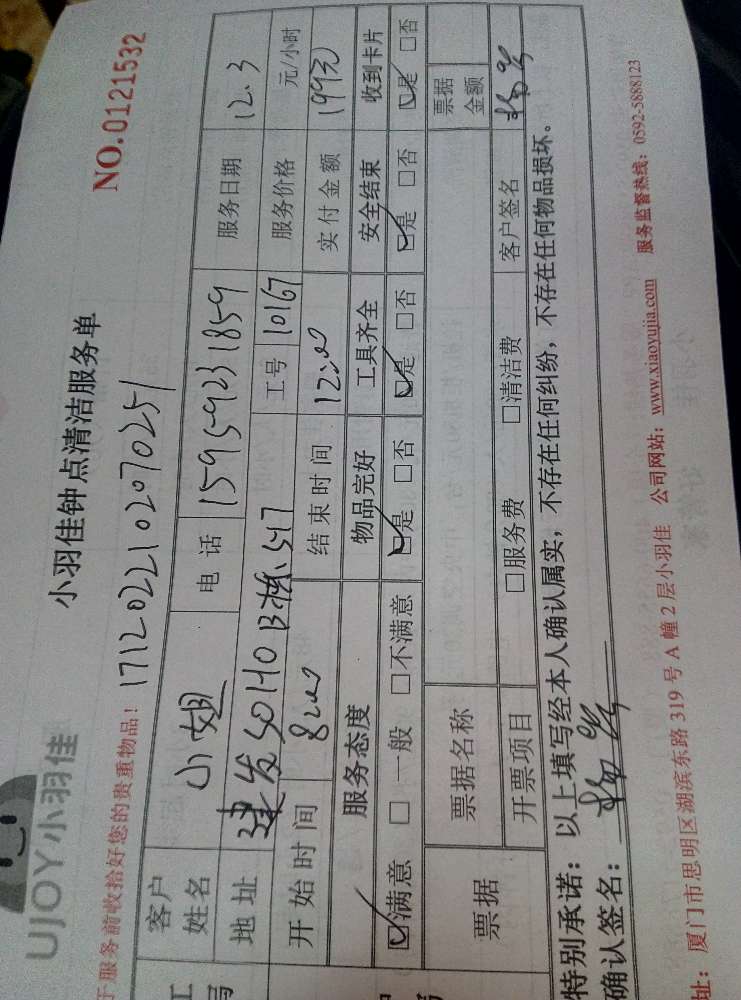 UJOY小羽佳
小羽佳钟点清洁服务单
NO.0121532
于服务前收拾好您的贵重物品! 1712022102070251
客户姓名 小姐 电话 15959231859 服务日期 12.3
地址 建发SOHO B栋547 工号 10167 服务价格 元/小时
开始时间 8:00 结束时间 12:00 实付金额 199元
服务态度 物品完好 工具齐全 安全结束 收到卡片
☑满意 □一般 □不满意 ☑是 □否 ☑是 □否 ☑是 □否 ☑是 □否
票据 票据名称 票据金额
开票项目 □服务费 □清洁费 客户签名
特别承诺:以上填写经本人确认属实,不存在任何纠纷,不存在任何物品损坏。
确认签名:
址:厦门市思明区湖滨东路319号A幢2层小羽佳 公司网站:www.xiaoyujia.com 服务监督热线:0592-5888123